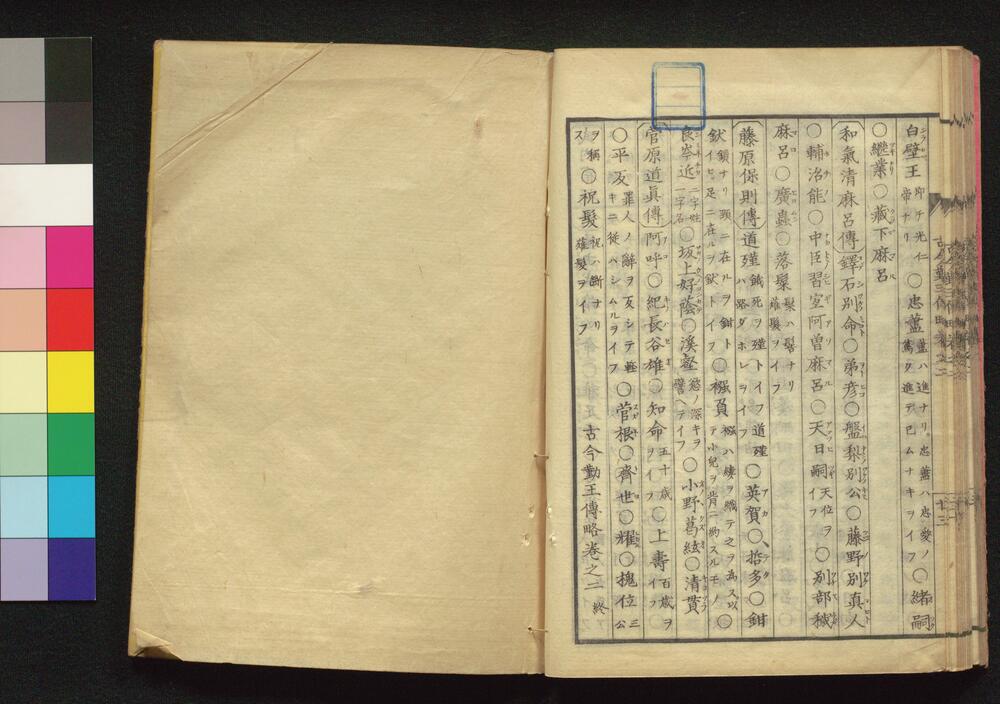 白壁王 即チ光仁帝ナリ ○忠藎 藎ハ進ナリ忠藎ハ忠愛ノ篤ク進デ已ムナキヲイフ ○緒嗣
○繼業○藏下麻呂
和氣清麻呂傳 鐸石別命○弟彦○盤梨別公○藤野別真人
○輔治能○中臣習宜阿曽麻呂○天日嗣 天位ヲイフ ○別部穢
麻呂○廣蟲○落髮 髮ハ髻ナリ薙髮ヲイフ
藤原保則傳 道殣 餓死ヲ殣トイフ道殣ハ路ダホレヲイフ ○英賀○哲多○鉗
釱 鎖ナリ頸ニ在ルヲ鉗トイヒ足ニ在ルヲ釱トイフ ○襁負 襁ハ縷ヲ織テ之ヲ為ス以テ小兒ヲ背ニ約スルモノ ○
良岑近 二字姓一字名 ○坂上好蔭○溪壑 慾ノ深キヲ譬ヘテイフ ○小野葛絃○清貫
菅原道眞傳 阿呼○紀長谷雄○知命 五十歳ヲイフ ○上壽 百歳ヲイフ
○平反 罪人ノ辭ヲ反シテ輕キニ從ハシムルヲイフ ○菅根○齊世○耀○槐位 三公
ヲ稱ス ○祝髮 祝ハ斷ナリ薙髮ヲイフ
古今勤王傳略巻之二 終
十三